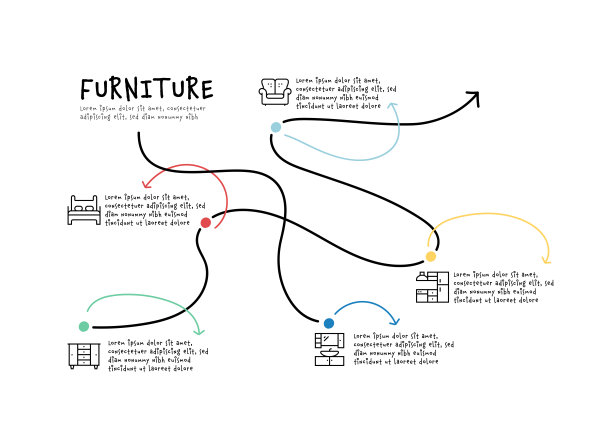 FURNITURE
Lorem ipsum dolor sit amet, consectetuer
adipiscing elit, sed diam nonummy nibh
Lorem ipsum dolor sit amet,
consectetuer adipiscing elit, sed
diam nonummy nibh euismod
tincidunt ut laoreet dolore
Lorem ipsum dolor sit amet,
consectetuer adipiscing elit, sed
diam nonummy nibh euismod
tincidunt ut laoreet dolore
Lorem ipsum dolor sit amet,
consectetuer adipiscing elit, sed
diam nonummy nibh euismod
tincidunt ut laoreet dolore
Lorem ipsum dolor sit amet,
consectetuer adipiscing elit, sed
diam nonummy nibh euismod
tincidunt ut laoreet dolore
Lorem ipsum dolor sit amet,
consectetuer adipiscing elit, sed
diam nonummy nibh euismod
tincidunt ut laoreet dolore